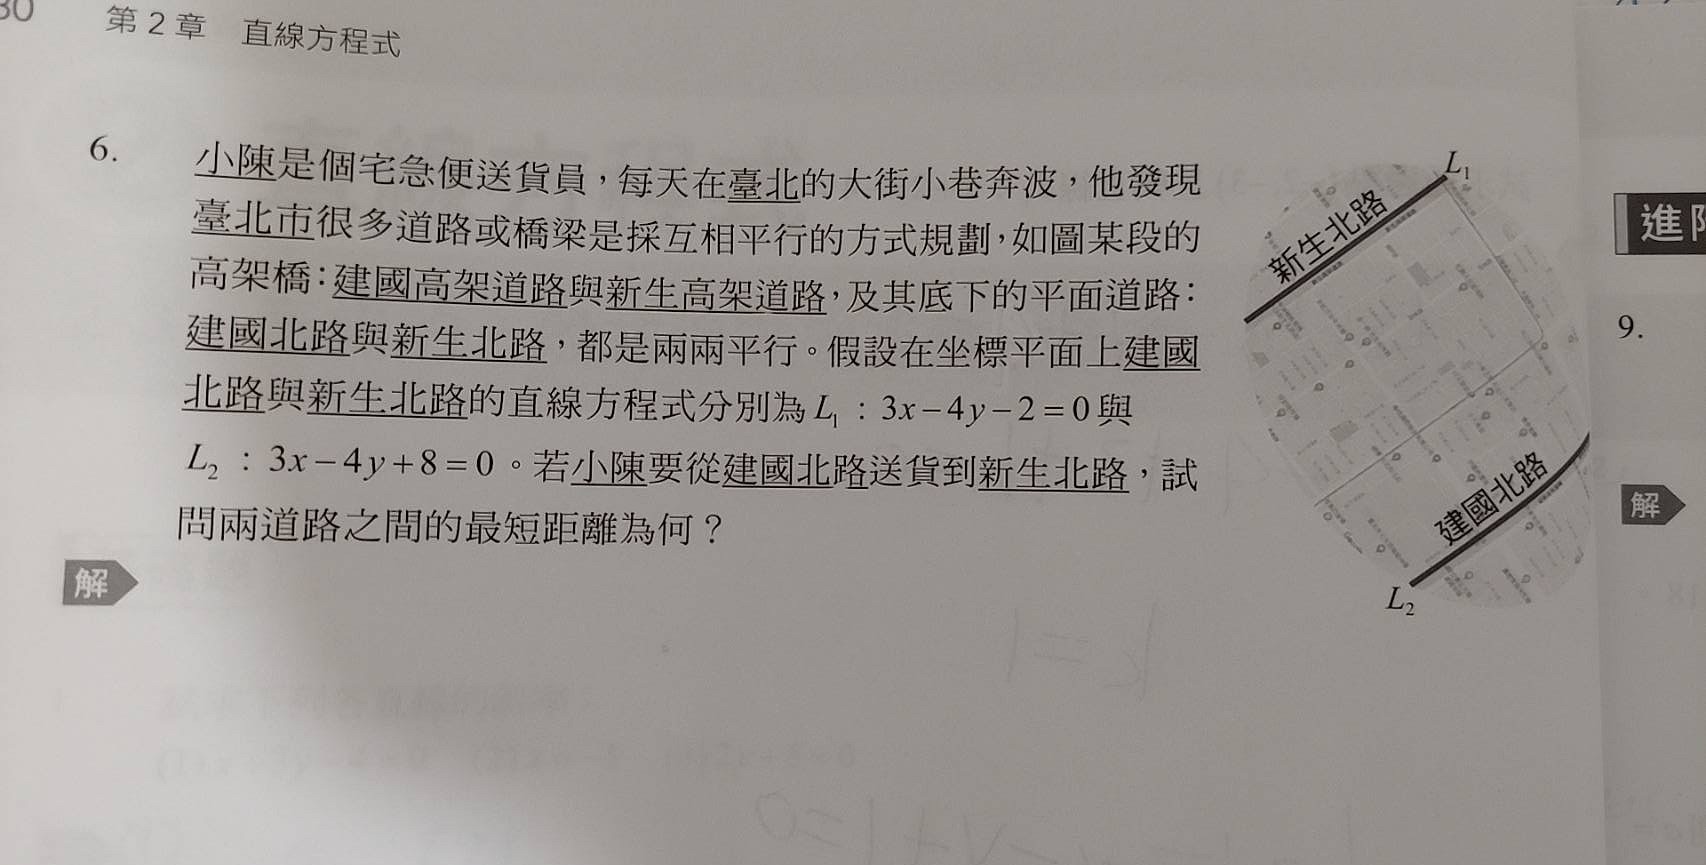 30
第 2 章 直線方程式
6. 小陳是個宅急便送貨員，每天在臺北的大街小巷奔波，他發現
臺北市很多道路或橋梁是採互相平行的方式規劃，如圖某段的
高架橋：建國高架道路與新生高架道路，及其底下的平面道路：
建國北路與新生北路，都是兩兩平行。假設在坐標平面上建國
北路與新生北路的直線方程式分別為 L₁ : 3x − 4y − 2 = 0 與
L₂ : 3x − 4y + 8 = 0 。若小陳要從建國北路送貨到新生北路，試
問兩道路之間的最短距離為何？
解
L₁
新生北路
建國北路
L₂
進
9.
解